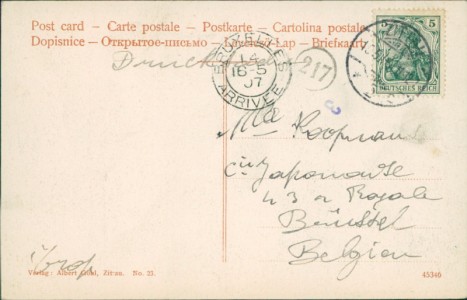 Post card - Carte postale - Postkarte - Cartolina postale
Dopisnice - Открытое-письмо - Levelező-Lap - Briefkaart
Drucksache
BRUXELLES
16-5
07
ARRIVÉE
217
5
DEUTSCHES REICH
Japonaise
43 r Royale
Brüssel
Belgien
Verlag: Albert Gühl, Zittau. No. 23.
45340